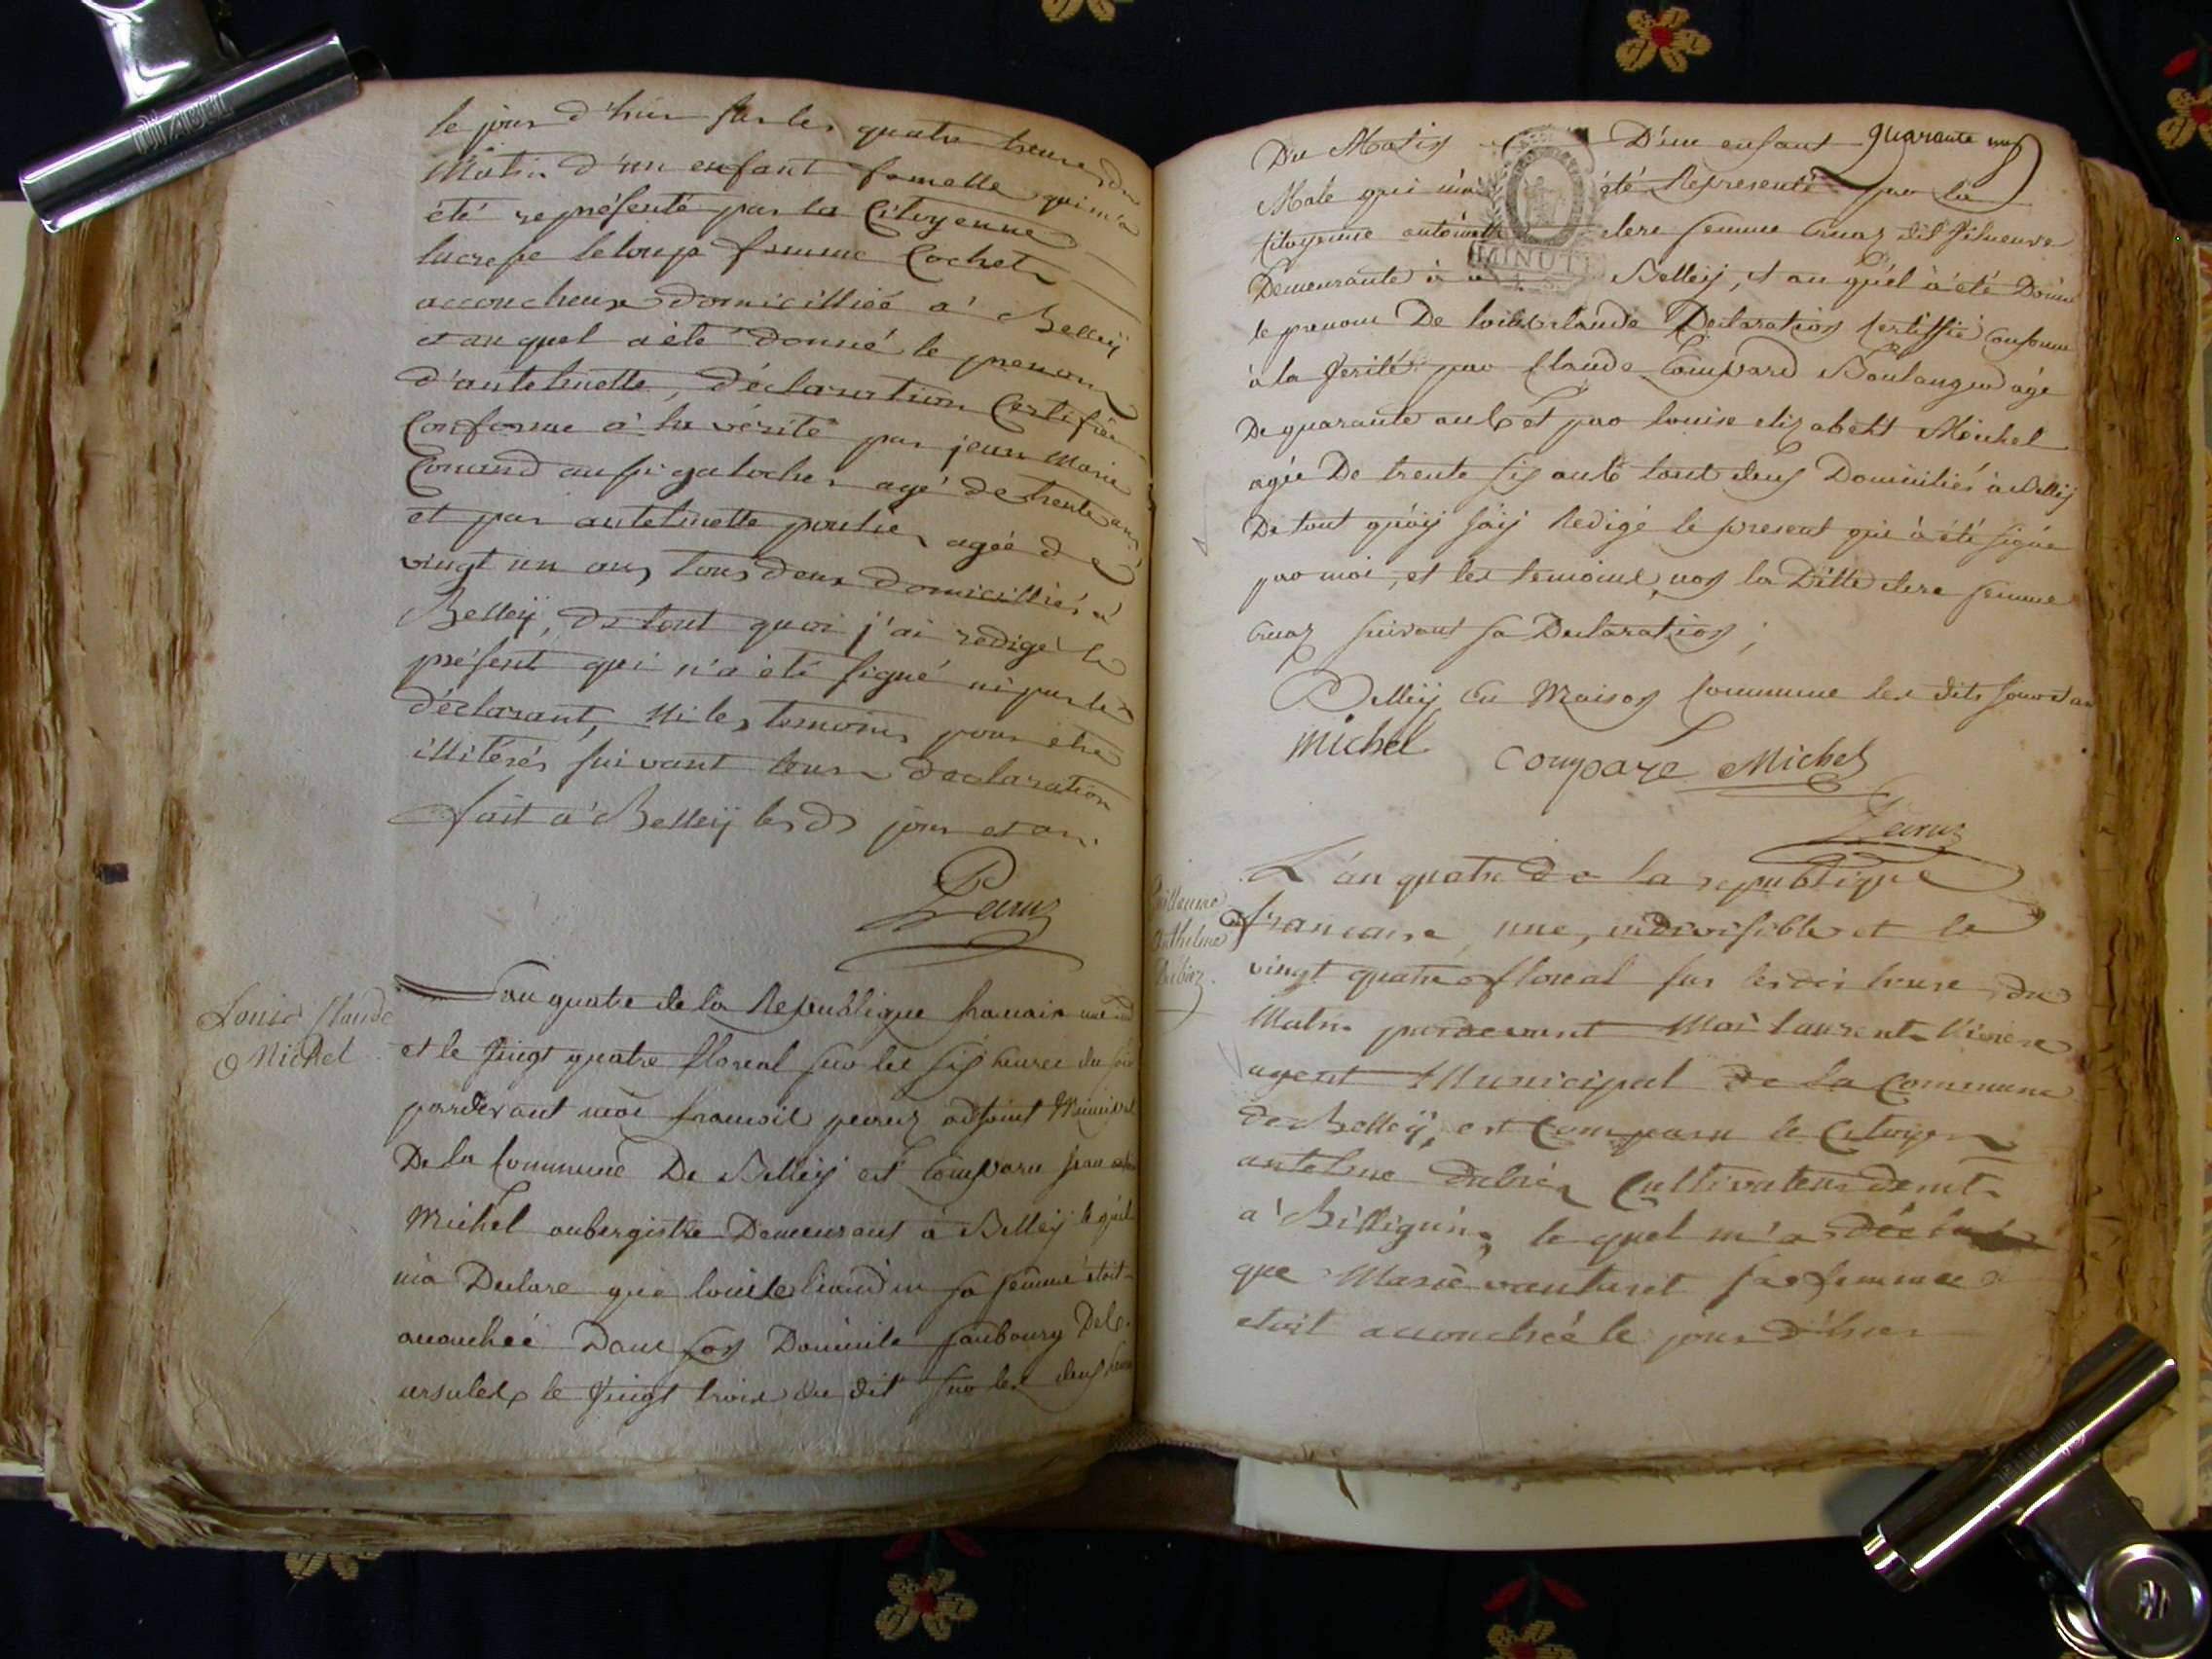 le jour d'hier sur les quatre heures du
Matin d'un enfant femelle qui m'a
été représenté par la Citoyenne
lucresse leloup femme Cochet
accoucheuse domicilliée a' Belley
et auquel a été donné le prenom
d'antelmette, déclaration Certifiée
Conforme a' la vérité par jean Marie
aussi galochier agé de trente ans
et par antelmette agée de
vingt un ans, tous deux domicilliés a'
Belley, de tout quoi j'ai redigé le
présent qui n'a été signé ni par le
déclarant, Ni les temoins pour etre
illitérés suivant leur declaration
fait a' Belley les ds jour et an.
Louis Claude
Michel
L'an quatre de la Republique francaise une
et le vingt quatre floreal sur les six heures du soir
pardevant moi francois adjoint Municipal
De la Commune De Belley est Comparu jean
Michel aubergiste Demeurant à Belley lequel
m'a Declare que louise sa femme étoit
accouchée Dans son Domicile faubourg Des
ursules le vingt trois du dit sur les deux heures
quarante neuf
Du Matin D'un enfant
Male qui m'a été Representé par la
Citoyenne antoinette clere femme cruaz dit
MINUT
Demeurante à Belley, et au quel à été Donné
le prenom De louis claude Declaration Certiffié Conforme
à la Verité par Claude Boulanger agé
De quarante ans et par louise elizabeht Michel
agée De trente six ans tous deux Domiciliés à Belley
De tout quoy j'ay Redigé le present qui à été signé
par moi, et les temoins, non la Ditte clere femme
cruaz suivant sa Declaration ;
Belley En Maison Commune les dits jour et an
Michel Compare Michel
Guillaume
Anthelme
L'an quatre de la republique
francaise une, indivisible et le
vingt quatre floreal sur les dix heure du
Matin pardevant Moi laurent
agent Municipal de la Commune
de Belley, est Comparu le Citoyen
antelme Cultivateur demt
a' Billignin, le quel m'a déclaré
que Marie sa femme
etoit accouchée le jour d'hier